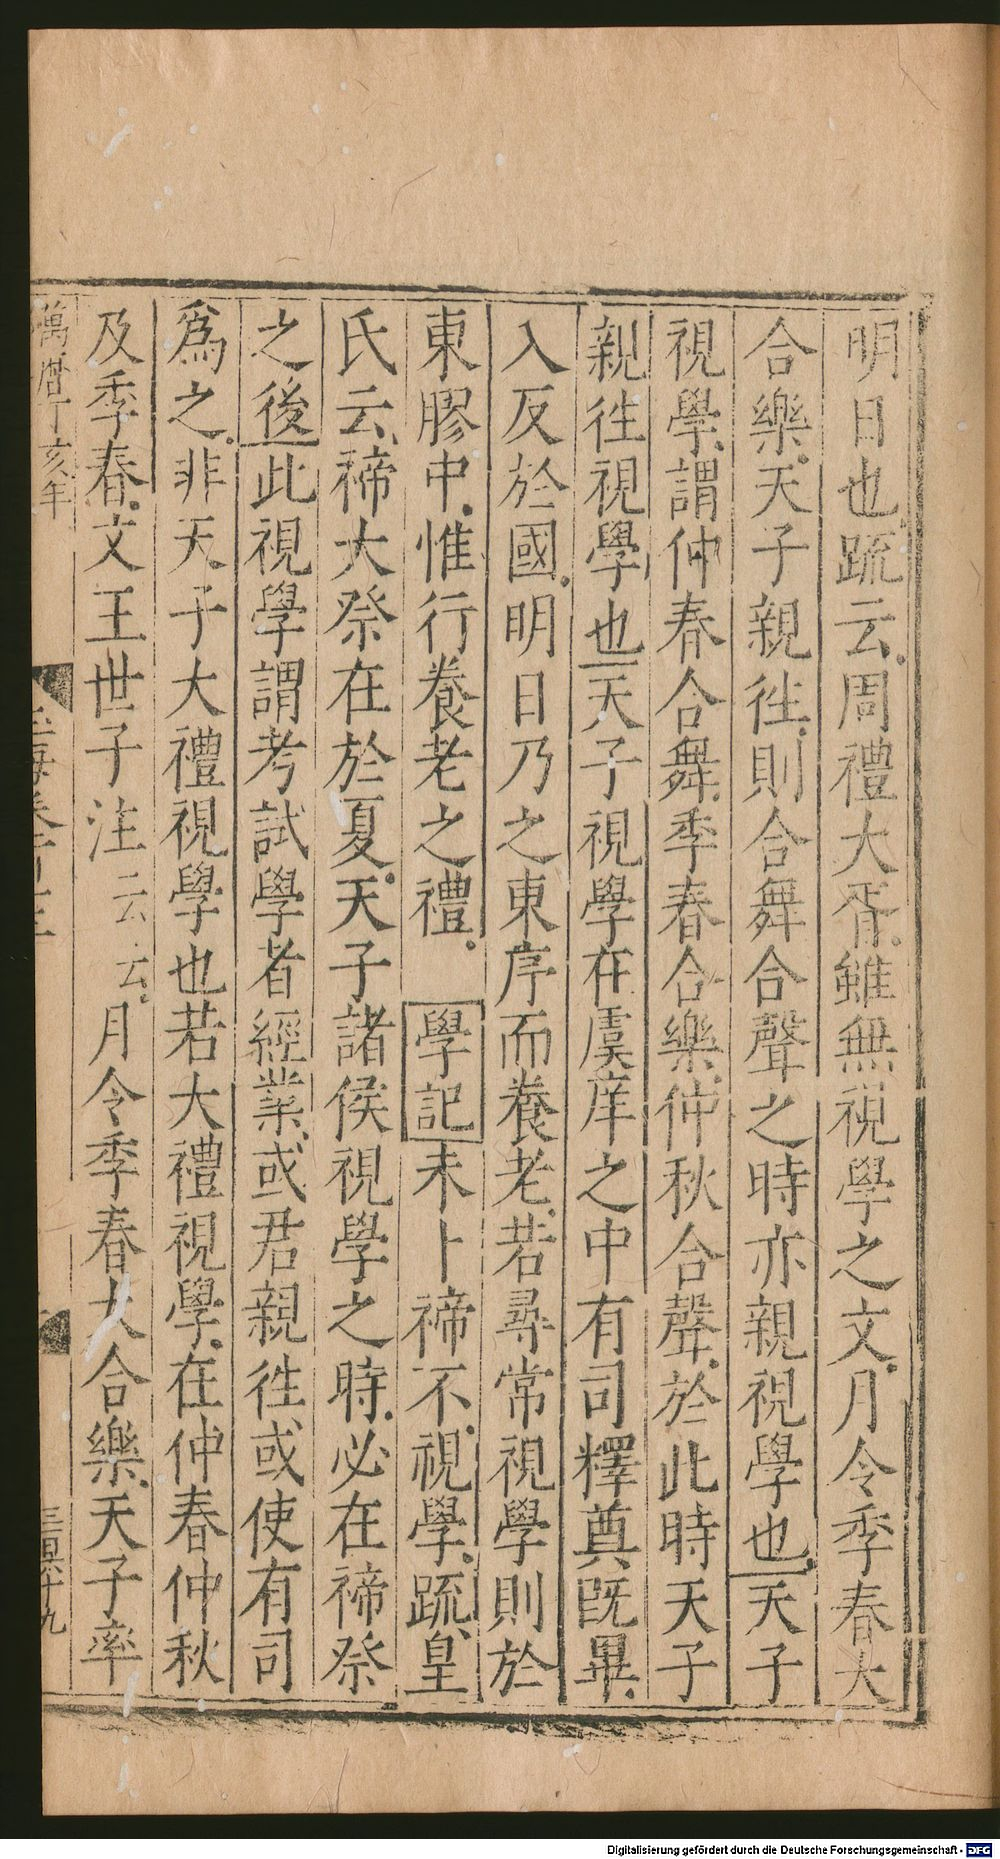 明日也疏云周禮大胥雖無視學之文月令季春大
合樂天子親往則合舞合聲之時亦親視學也天子
視學謂仲春合舞季春合樂仲秋合聲於此時天子
親往視學也天子視學在虞庠之中有司釋奠既畢
入反於國明日乃之東序而養老若尋常視學則於
東膠中惟行養老之禮 學記未卜禘不視學疏皇
氏云禘大祭在於夏天子諸侯視學之時必在禘祭
之後此視學謂考試學者經業或君親往或使有司
爲之非天子大禮視學也若大禮視學在仲春仲秋
及季春文王世子注云云月令季春大合樂天子率
萬曆丁亥年
Digitalisierung gefördert durch die Deutsche Forschungsgemeinschaft - DFG